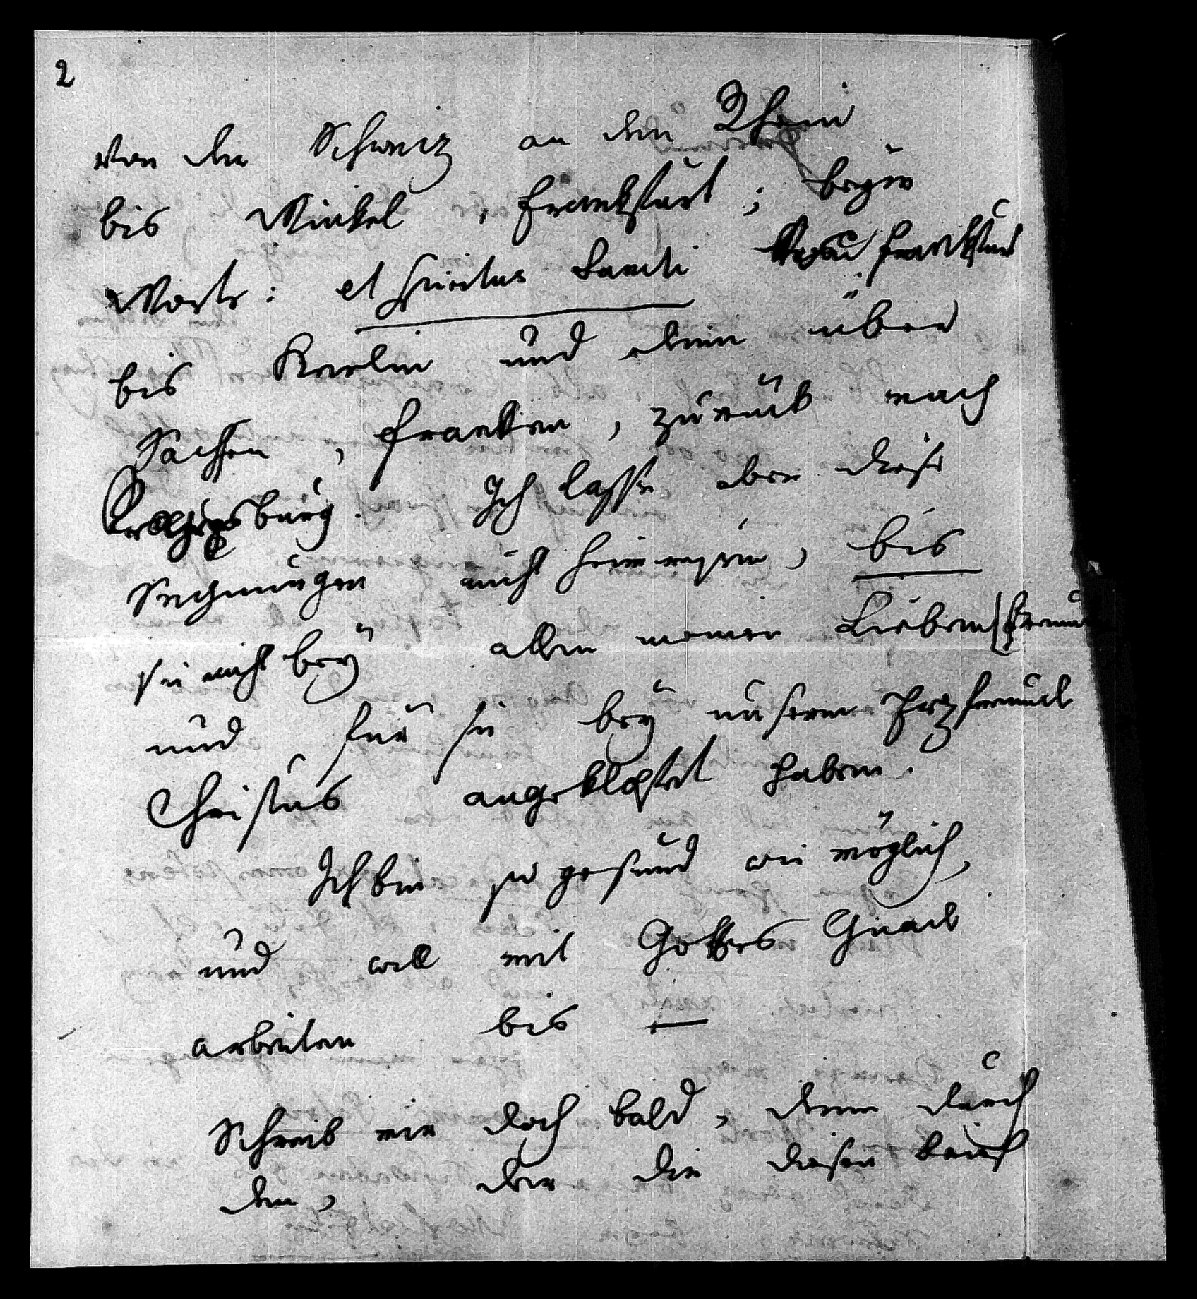 2
von der Schweiz an den Rhein
bis Winkel, Frankfurt; beym
Worte: et Spiritus Sancti von Frankfurt
bis Berlin und dann über
Sachsen, Franken, zurück nach
Ich lasse aber diese
Segnungen nicht hinwegseyn, bis
sie nicht bey allen meinen Lieben Freund
und für sie bey unserm Erzfreund
Christus angeklopfet haben.
Ich bin so gesund wie möglich,
und will mit Gottes Gnade
arbeiten bis —
Schreib mir doch bald, denn durch
den, der dir diesen Brief